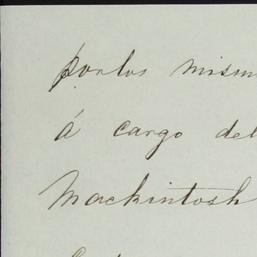 por los mism
á cargo del
Mackintosh